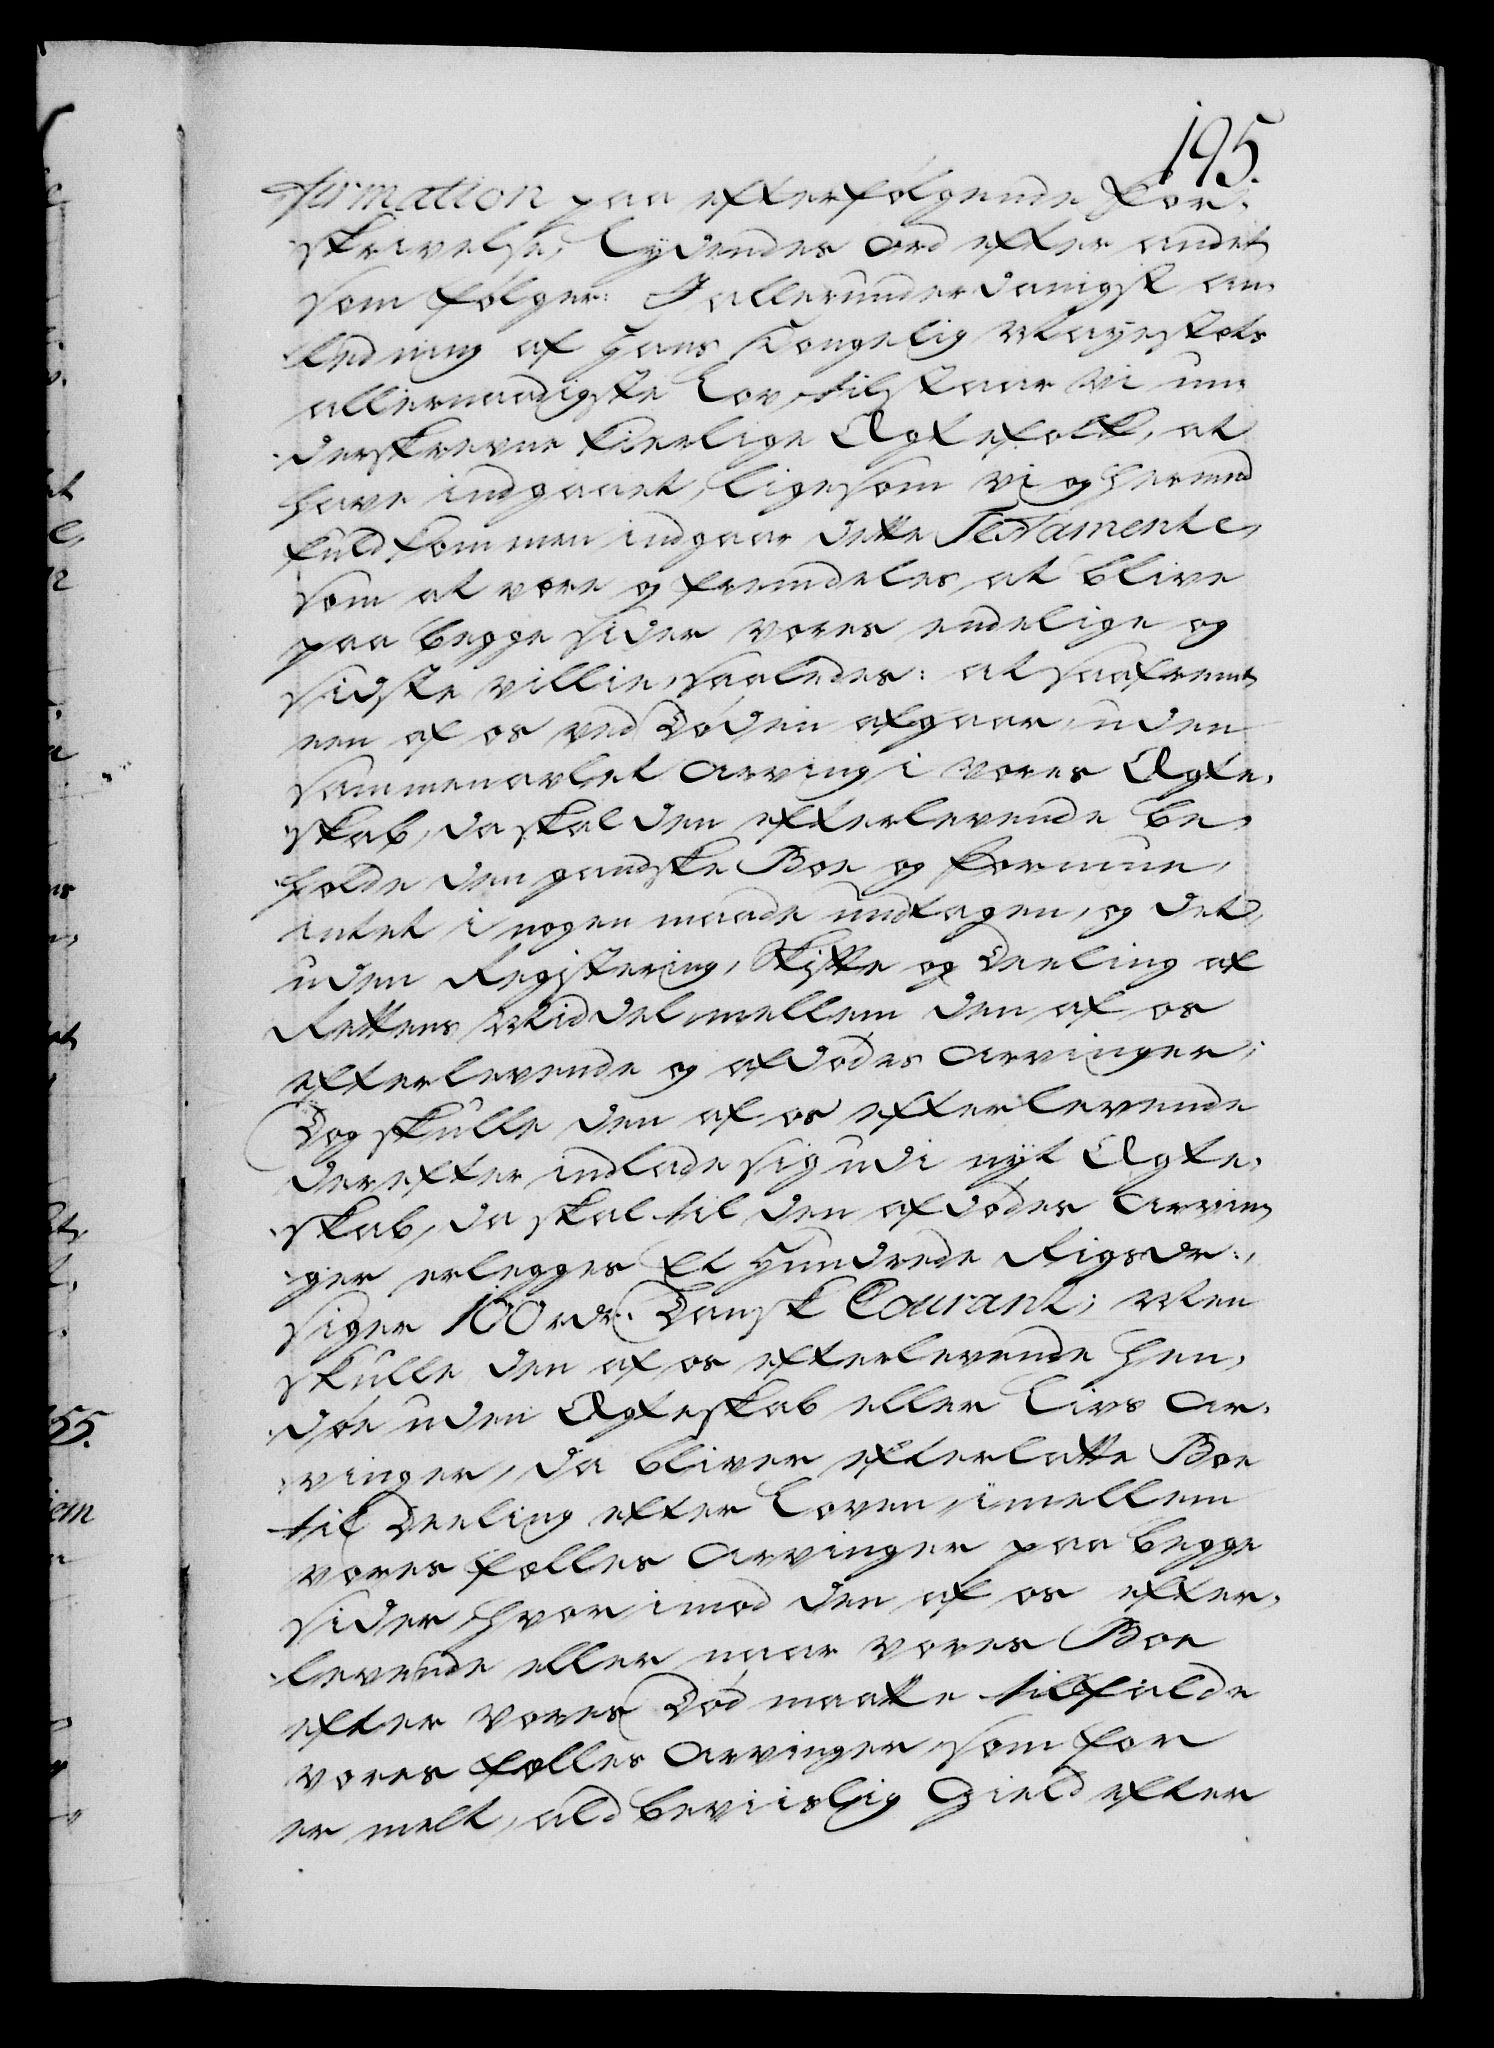 195.
firmation paa efterfølgende For-
skrivelse, lydendes ord efter andet
som følger: I allerunderdanigst an-
ledning af Hans Kongelig Mayestets
allernaadigste Lov, tilstaar vi un-
derskrevne kierlige Ægtefolk, at
have indgaaet, ligesom vi og hermed
fuldkommen indgaar dette Testamente,
som at være og fremdeles at blive
paa begge sider vores endelige og
sidste villie, saaledes: at saafremt
een af os ved Døden afgaar, uden
sammenavlet arving i vores Ægte-
skab, da skal den efterlevende be-
holde den gandske Boe og formue,
intet i nogen maade undtagen, og det
uden Registering, Skifte og Deeling af
Rettens Middel mellem den af os
efterlevende og afdødes arvinger;
Dog skulle den af os efterlevende
derefter indlade sig udi nyt Ægte-
skab, da skal til den afdødes arvin-
ger erlegges Et Hundrede Rigsdr.,
siger 100 rdr. Dansk Courant; Men
skulle den af os efterlevende hen-
døe uden Ægteskab eller Livs ar-
vinger, da bliver efterlatte Boe
til Deeling efter Loven imellem
vores fælles arvinger paa begge
sider, hvorimod den af os efter-
levende eller naar vores Boe
efter vores Død maatte tilfalde
vores fælles arvinger, som for
er melt, ald beviislig Gield efter